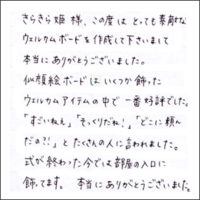 きらきら姫様、この度はとっても素敵な
ウェルカムボードを作成して下さいまして
本当にありがとうございました。
似顔絵ボードはいくつか飾った
ウェルカムアイテムの中で一番好評でした。
「すごいねぇ」「そっくりだね！」「どこに頼ん
だの?!」とたくさんの人に言われました。
式が終わった今では部屋の入口に
飾ってます。 本当にありがとうございました。